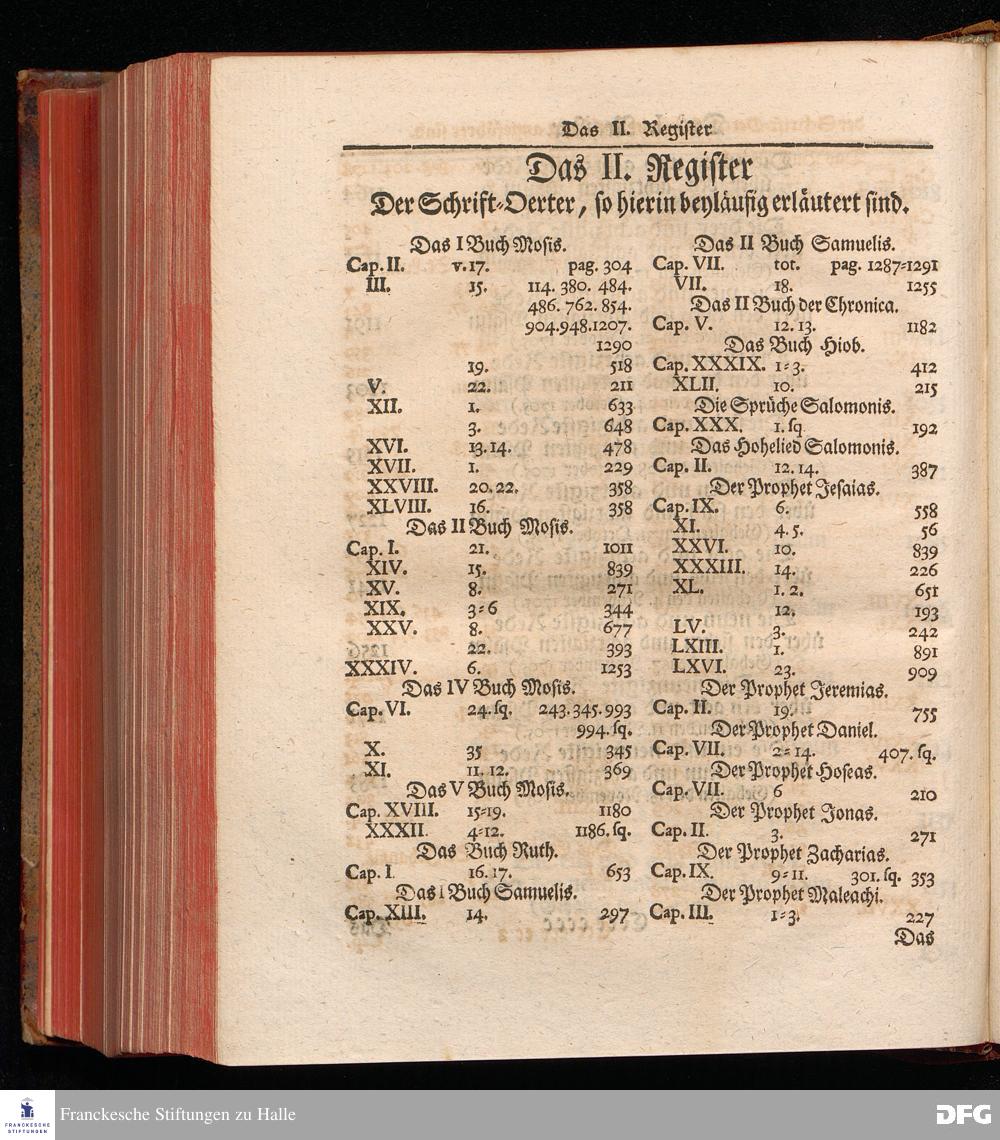 Das II. Register
Das II. Register
Der Schrift-Oerter, so hierin beyläufig erläutert sind.
Das I Buch Mosis.
Cap. II. v. 17. pag. 304
III. 15. 114. 380. 484.
486. 762. 854.
904. 948. 1207.
1290
19. 518
V. 22. 211
XII. 1. 633
3. 648
XVI. 13. 14. 478
XVII. 1. 229
XXVIII. 20. 22. 358
XLVIII. 16. 358
Das II Buch Mosis.
Cap. I. 21. 1011
XIV. 15. 839
XV. 8. 271
XIX. 3-6 344
XXV. 8. 677
22. 393
XXXIV. 6. 1253
Das IV Buch Mosis.
Cap. VI. 24. sq. 243. 345. 993
994. sq.
X. 35 345
XI. 11. 12. 369
Das V Buch Mosis.
Cap. XVIII. 15-19. 1180
XXXII 4-12. 1186. sq.
Das Buch Ruth.
Cap. I. 16. 17. 653
Das I Buch Samuelis.
Cap. XIII. 14. 297
Das II Buch Samuelis.
Cap. VII. tot. pag. 1287-1291
VII. 18. 1255
Das II Buch der Chronica.
Cap. V. 12. 13. 1182
Das Buch Hiob.
Cap. XXXIX. 1-3. 412
XLII. 10. 215
Die Sprüche Salomonis.
Cap. XXX. 1. sq 192
Das Hohelied Salomonis.
Cap. II. 12. 14. 387
Der Prophet Jesaias.
Cap. IX. 6. 558
XI. 4. 5. 56
XXVI. 10. 839
XXXIII. 14. 226
XL. 1. 2. 651
12. 193
LV. 3. 242
LXIII. 1. 891
LXVI. 23. 909
Der Prophet Jeremias.
Cap. II. 19. 755
Der Prophet Daniel.
Cap. VII. 2-14. 407. sq.
Der Prophet Hoseas.
Cap. VII. 6 210
Der Prophet Jonas.
Cap. II. 3. 271
Der Prophet Zacharias.
Cap. IX. 9-11. 301. sq. 353
Der Prophet Maleachi.
Cap. III. 1-3. 227
Das
FRANCKESCHE
STIFTUNGEN
Franckesche Stiftungen zu Halle
DFG